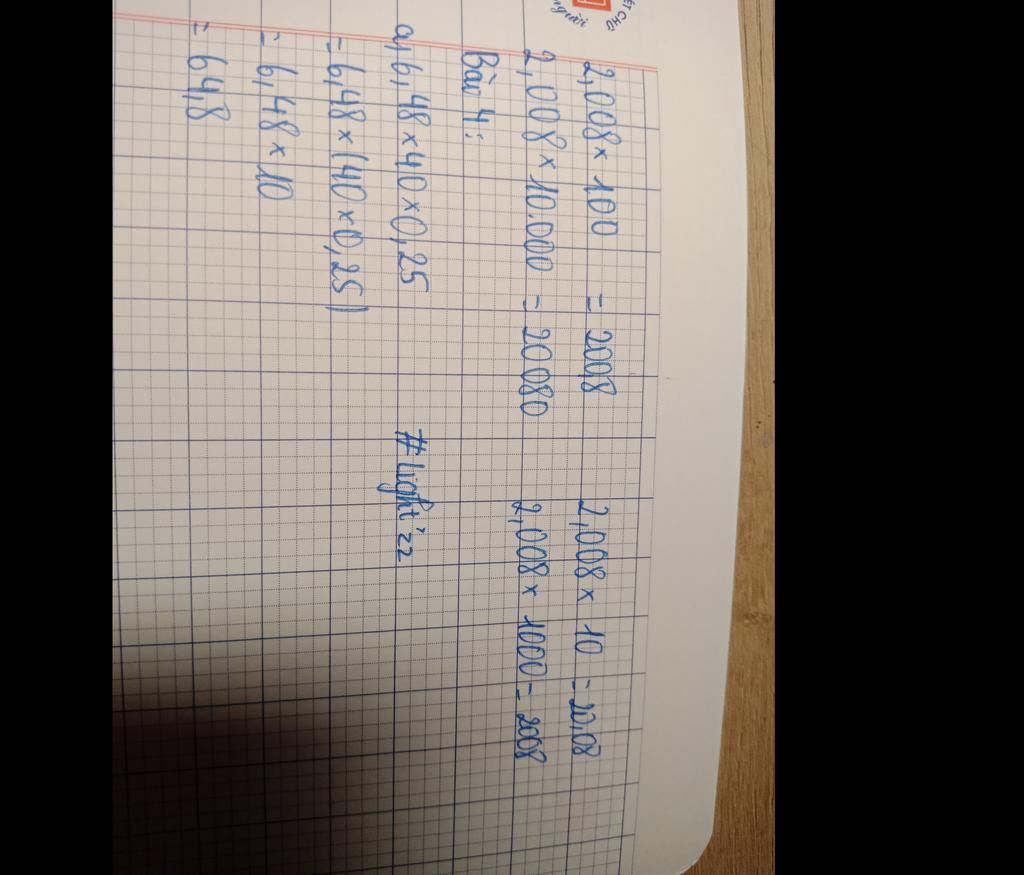 ẾT CHỮ
người
2,008 × 100 = 200,8 2,008 × 10 = 20,08
2,008 × 10.000 = 20080 2,008 × 1000 = 2008
Bài 4:
a, 6,48 × 40 × 0,25 #Light'22
= 6,48 × (40 × 0,25)
= 6,48 × 10
= 64,8